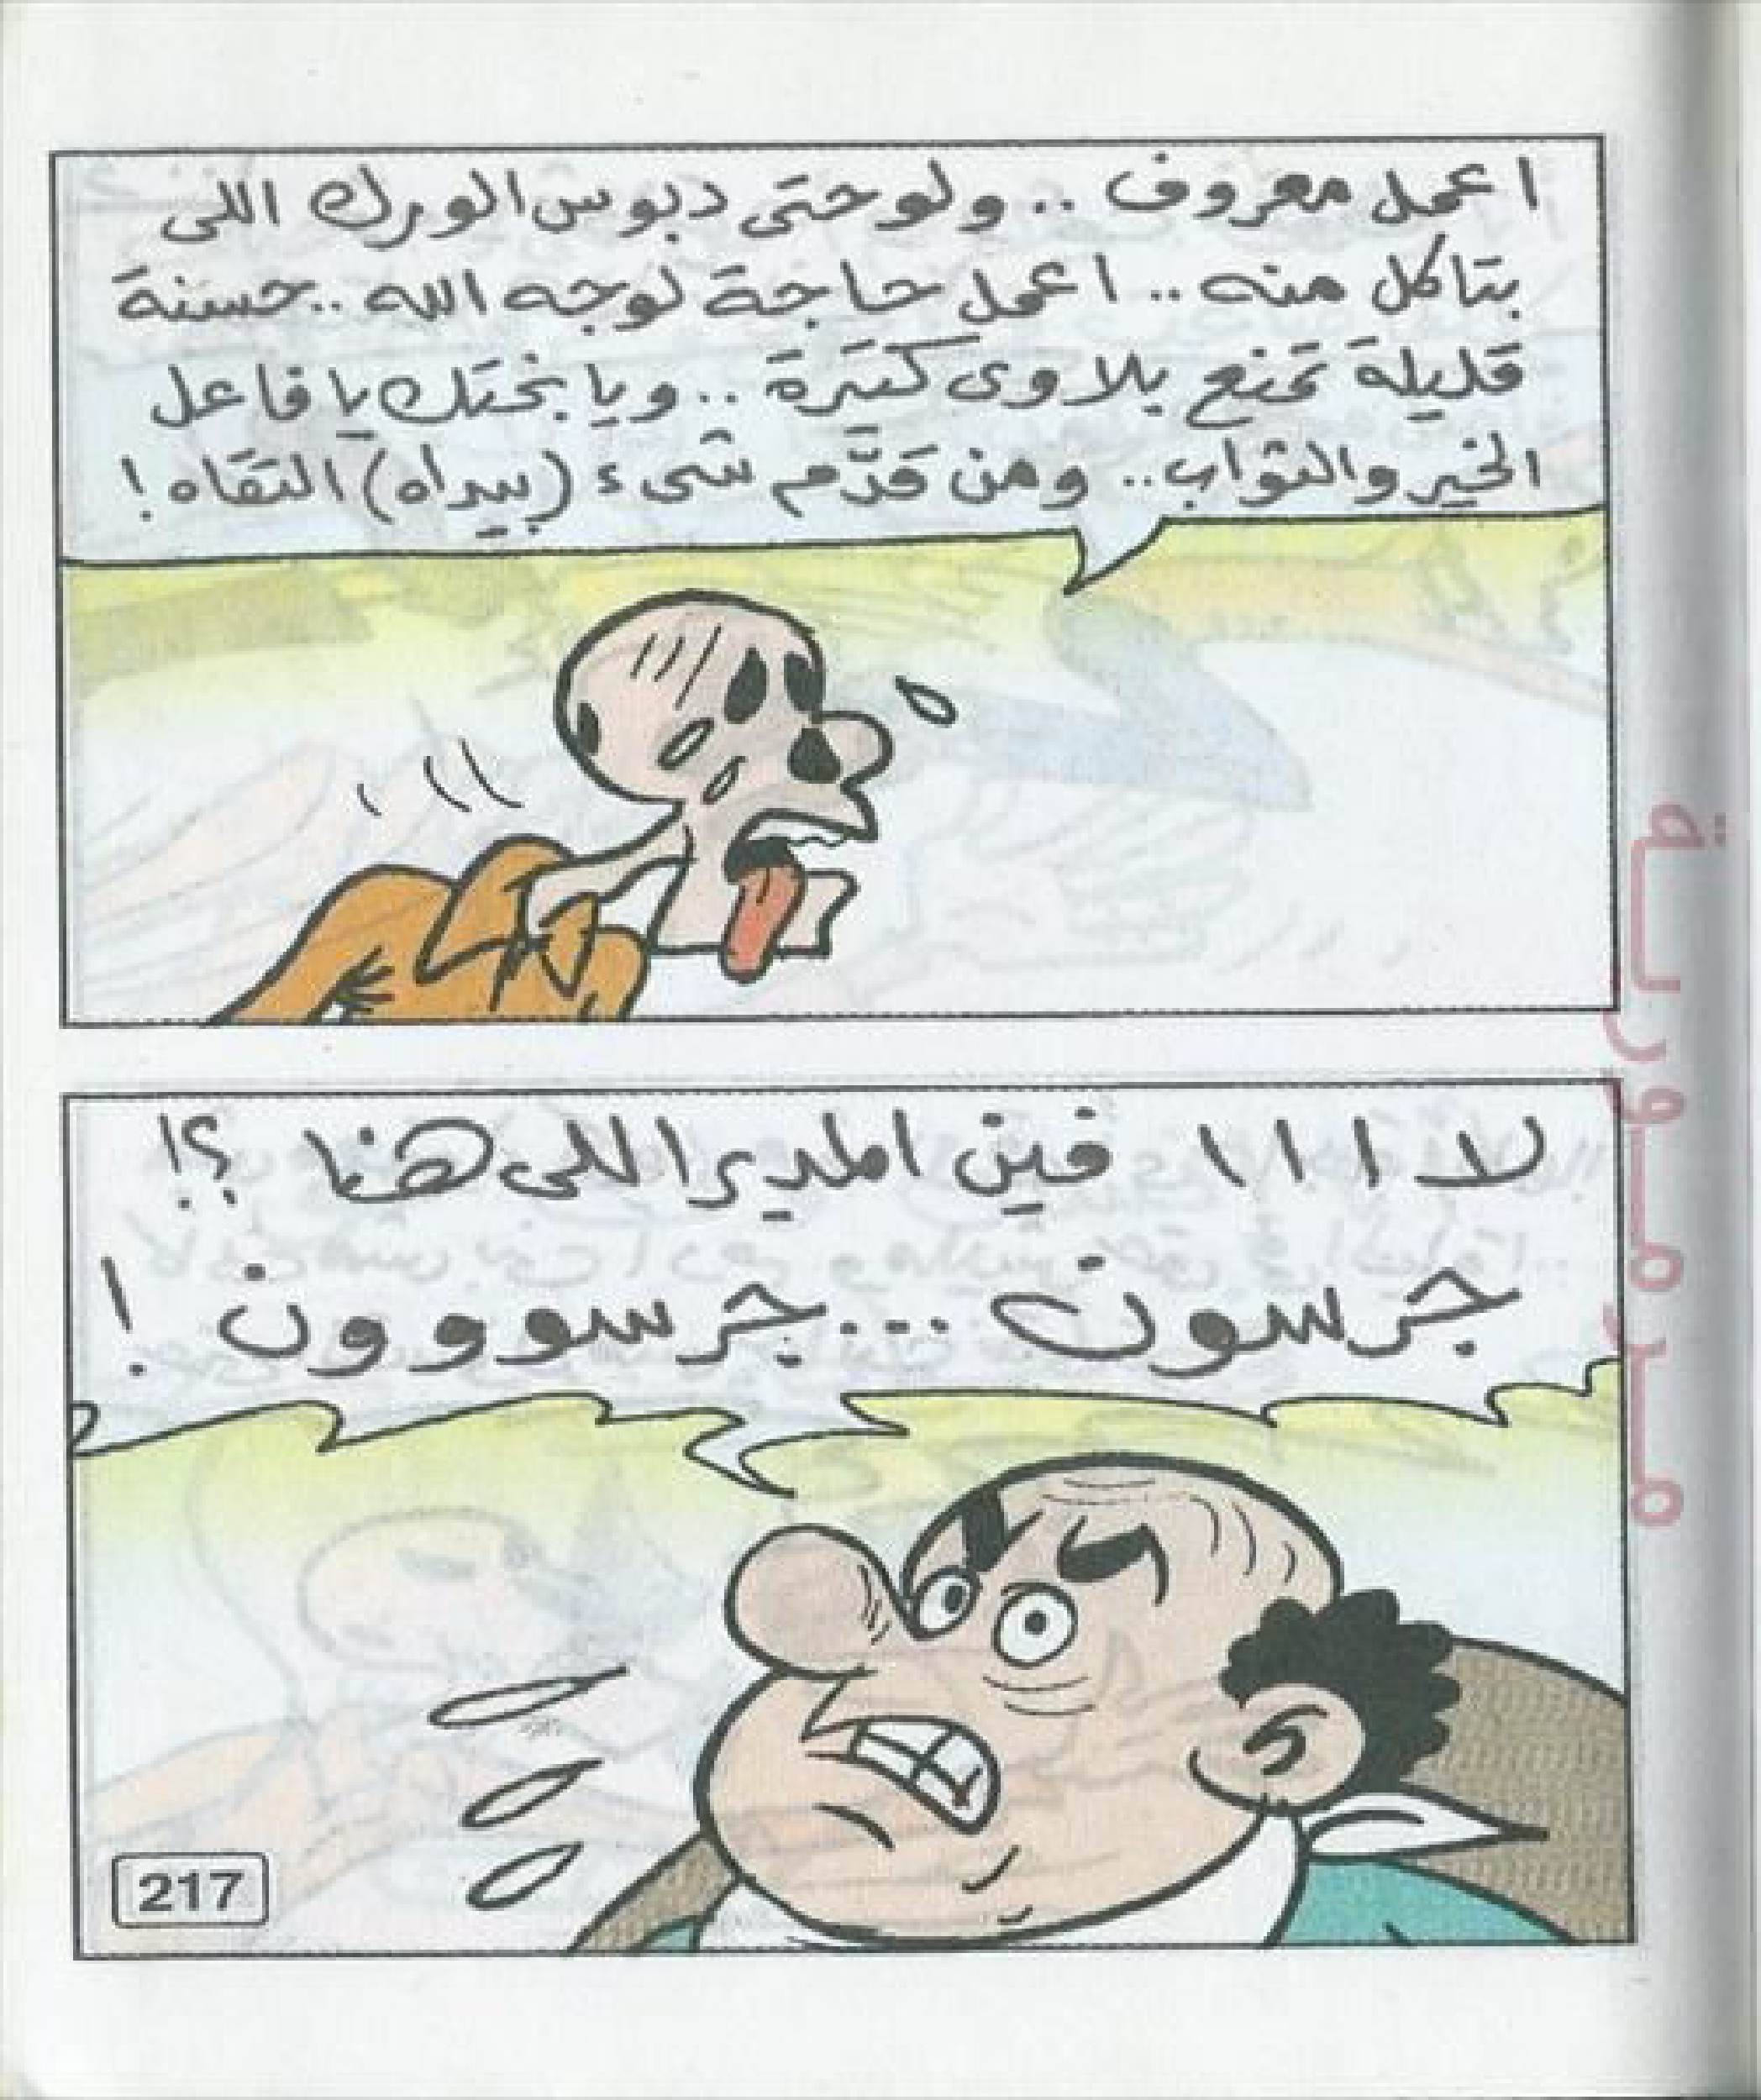 اعمل معروف .. ولو حتى دبوس الورك اللى
بتاكل منه .. اعمل حاجة لوجه الله .. حسنة
قليلة تمنع بلاوى كتيرة .. ويا بختك يا فاعل
الخير والثواب .. ومن قدَّم شىء (بيداه) التقاه !
لا ا ا ا فين المدير اللى هنا ؟!
جرسون ... جرسووون !
217